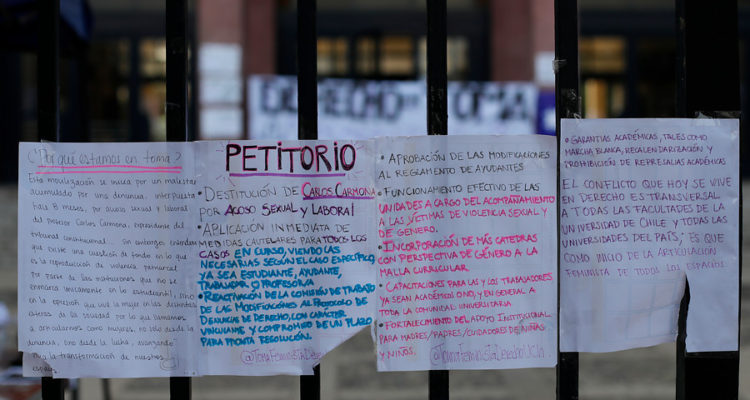 DERECHO EN TOMA
¿Por qué estamos en toma?
Esta movilización se inicia por un malestar
acumulado por una denuncia interpuesta
hace 8 meses, por acoso sexual y laboral
del profesor Carlos Carmona, expresidente del
tribunal constitucional... Sin embargo, entendemos
que existe una cuestión de fondo en lo que
es la reproducción de violencia patriarcal
por parte de las instituciones que no se
enmarca únicamente en lo estudiantil, sino
en la opresión que vive la mujer en las distintas
esferas de la sociedad por lo que llamamos
a articularnos como mujeres, no sólo desde la
, sino desde la lucha, avanzando
la transformación de nuestros
PETITORIO
• DESTITUCIÓN DE CARLOS CARMONA
POR ACOSO SEXUAL Y LABORAL
• APLICACIÓN INMEDIATA DE
MEDIDAS CAUTELARES PARA TODOS LOS
CASOS EN CURSO, VIENDO LAS
NECESARIAS SEGÚN EL CASO ESPECÍFICO,
YA SEA ESTUDIANTE, AYUDANTE,
TRABAJADOR O PROFESOR/A
• REACTIVACIÓN DE LA COMISIÓN DE TRABAJO
DE LAS MODIFICACIONES AL PROTOCOLO DE
DENUNCIAS DE DERECHO, CON CARÁCTER
VINCULANTE Y COMPROMISO DE UN PLAZO
PARA PRONTA RESOLUCIÓN.
• APROBACIÓN DE LAS MODIFICACIONES
AL REGLAMENTO DE AYUDANTES
• FUNCIONAMIENTO EFECTIVO DE LAS
UNIDADES A CARGO DEL ACOMPAÑAMIENTO
A LAS VÍCTIMAS DE VIOLENCIA SEXUAL Y
DE GÉNERO.
• INCORPORACIÓN DE MÁS CÁTEDRAS
CON PERSPECTIVA DE GÉNERO A LA
MALLA CURRICULAR
• CAPACITACIONES PARA LAS Y LOS TRABAJADORES
YA SEAN ACADÉMICOS O NO, Y EN GENERAL A
TODA LA COMUNIDAD UNIVERSITARIA
• FORTALECIMIENTO DEL APOYO INSTITUCIONAL
PARA MADRES/PADRES/CUIDADORES DE NIÑAS
Y NIÑOS.
• GARANTÍAS ACADÉMICAS, TALES COMO
MARCHA BLANCA, RECALENDARIZACIÓN Y
PROHIBICIÓN DE REPRESALIAS ACADÉMICAS
EL CONFLICTO QUE HOY SE VIVE
EN DERECHO ES TRANSVERSAL
A TODAS LAS FACULTADES DE LA
UNIVERSIDAD DE CHILE Y TODAS LAS
UNIVERSIDADES DEL PAÍS; ES QUE
COMO INICIO DE LA ARTICULACIÓN
FEMINISTA DE TODOS LOS ESPACIOS